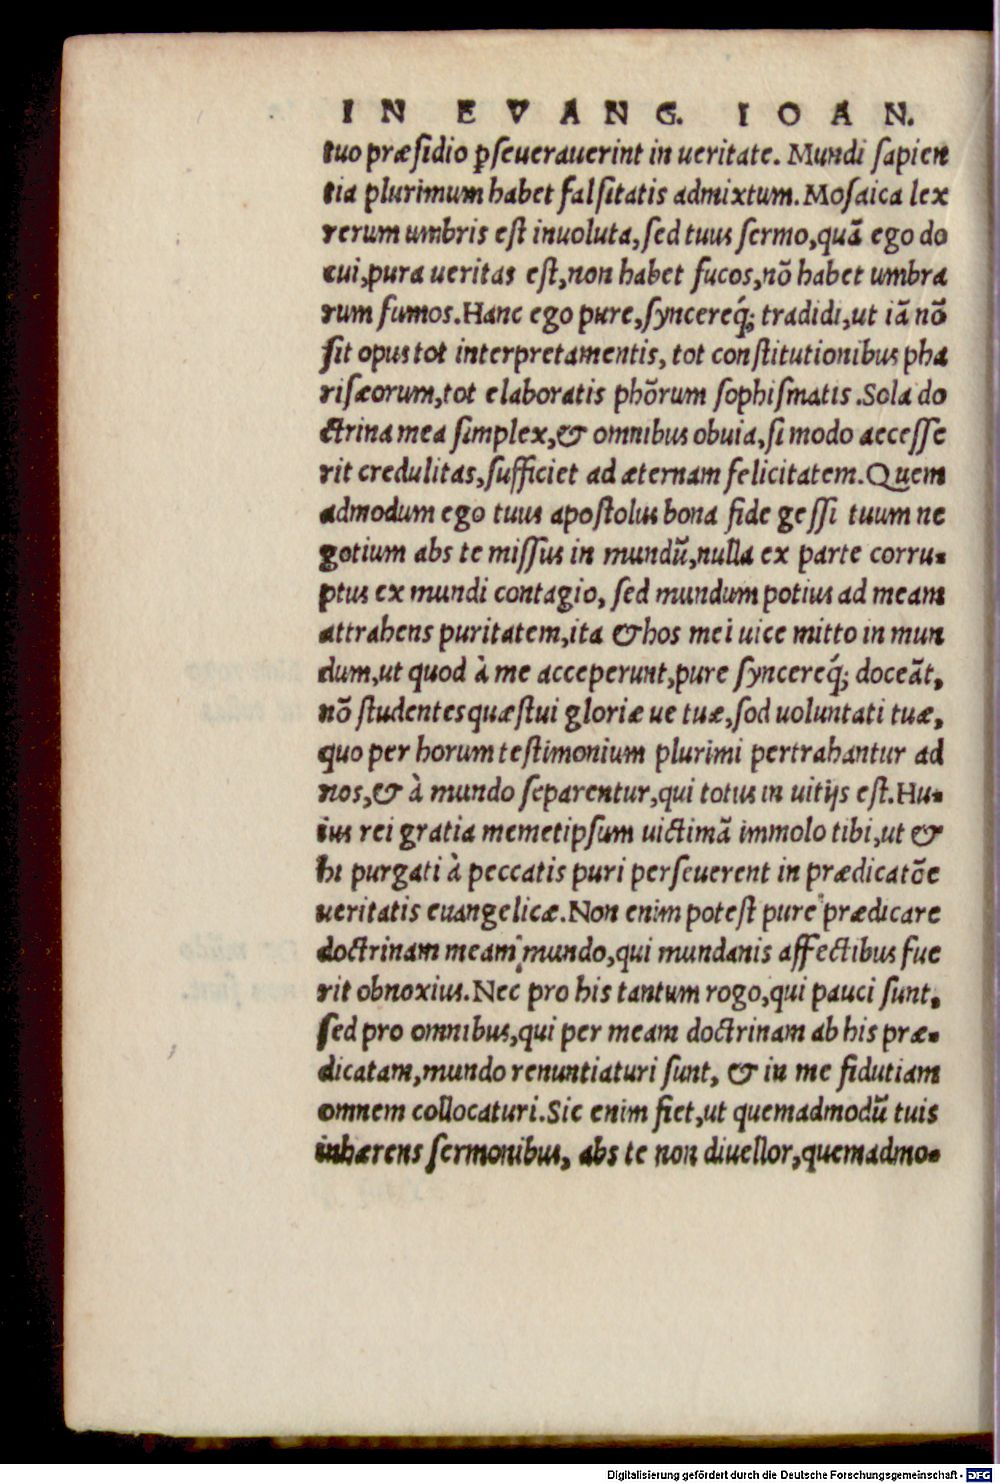 IN EVANG. IOAN.
tuo præſidio ꝑſeuerauerint in ueritate. Mundi ſapien
tia plurimum habet falſitatis admixtum. Moſaica lex
rerum umbris eſt inuoluta, ſed tuus ſermo, quã ego do
cui, pura ueritas eſt, non habet fucos, nõ habet umbra
rum fumos. Hanc ego pure, ſyncereq́; tradidi, ut iã nõ
ſit opus tot interpretamentis, tot conſtitutionibus pha
riſæorum, tot elaboratis phõrum ſophiſmatis. Sola do
ctrina mea ſimplex, & omnibus obuia, ſi modo acceſſe
rit credulitas, ſufficiet ad æternam felicitatem. Quem
admodum ego tuus apoſtolus bona fide geſſi tuum ne
gotium abs te miſſus in mundũ, nulla ex parte corru-
ptus ex mundi contagio, ſed mundum potius ad meam
attrahens puritatem, ita & hos mei uice mitto in mun
dum, ut quod à me acceperunt, pure ſyncereq́; doceãt,
nõ ſtudentes quæſtui gloriæ ue tuæ, ſod uoluntati tuæ,
quo per horum teſtimonium plurimi pertrahantur ad
nos, & à mundo ſeparentur, qui totus in uitijs eſt. Hu-
ius rei gratia memetipſum uictimã immolo tibi, ut &
hi purgati à peccatis puri perſeuerent in prædicatõe
ueritatis euangelicæ. Non enim poteſt pure prædicare
doctrinam meam mundo, qui mundanis affectibus fue
rit obnoxius. Nec pro his tantum rogo, qui pauci ſunt,
ſed pro omnibus, qui per meam doctrinam ab his præ-
dicatam, mundo renuntiaturi ſunt, & in me fidutiam
omnem collocaturi. Sic enim fiet, ut quemadmodũ tuis
inhærens ſermonibus, abs te non diuellor, quemadmo-
Digitalisierung gefördert durch die Deutsche Forschungsgemeinschaft - DFG